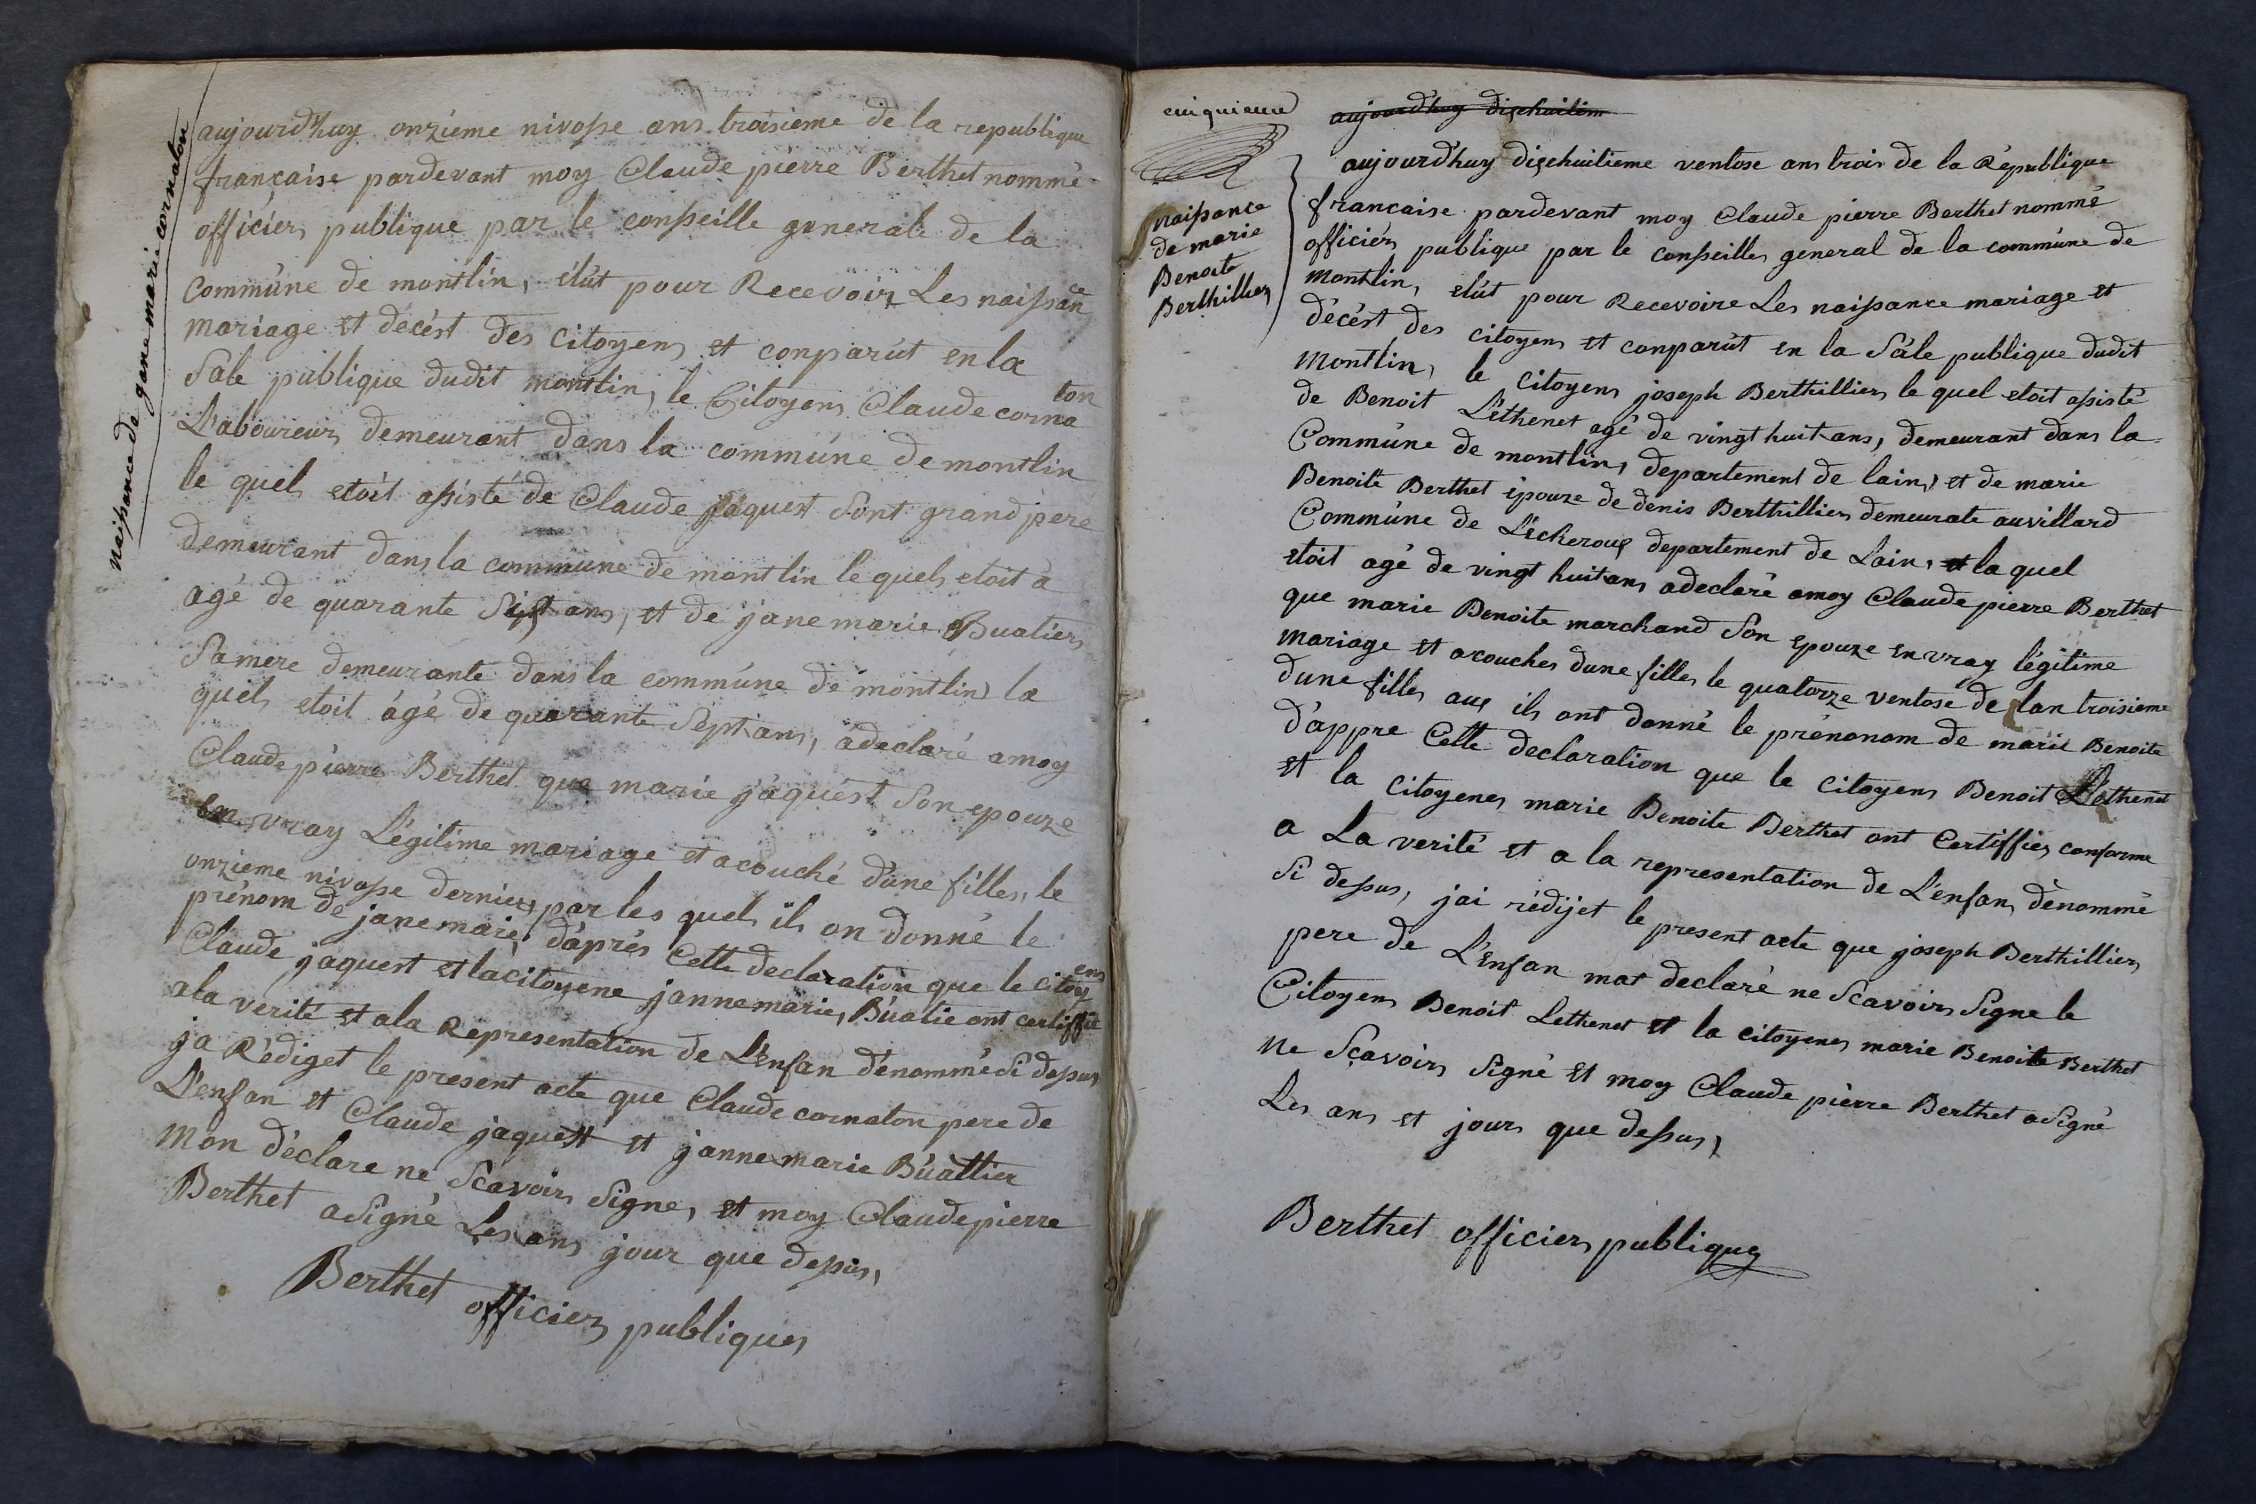 naissance de jane marie cornaton
aujourdhuy onzieme nivosse ans troisieme de la republique
francaise pardevant moy Claude pierre Berthet nommé
officier publique par le conseille generale de la
commune de montlin, élut pour Recevoir Les naissance
mariage et decést des citoyens et conparut en la
Sale publique dudit montlin, le Citoyen Claude cornaton
Laboureur demeurant dans la commune de montlin
le quel etoit assisté de Claude jaquest Sont grand pere
demeurant dans la commune de montlin le quel etoit á
agé de quarante Sixt ans, et de jane marie Buatier
Samere demeurante dans la commune de montlin la
quel etoit ágé de quarante Sept ans, adeclaré amoy
Claude pierre Berthet que marie jaquést Son epouze
en vray Légitime mariage et acouché dune filles, le
onzieme nivosse dernier, par les quels ils on donné le
prénom de jane marie, dáprés Cette declaration que le citoyens
Claude jaquest et lacitoyene janne marie, Buatie ont certiffié
ala verité et ala Representation de Lénfan dénommé Si dessus
ja Rédiget le present acte que Claude cornaton pere de
Lénfan et Claude jaquest et janne marie Buattier
mon déclare ne Scavoir Signe, et moy Claude pierre
Berthet asigné Les ans jour que dessus,
Berthet officier publiques
cinquieme
aujourdhuy dixhuitiem
naissance
de marie
Benoite
Berthillier
aujourdhuy dixhuitieme ventose ans trois de la République
francaise pardevant moy Claude pierre Berthet nommé
officiér publique par le conseiller general de la commune de
montlin, elut pour Recevoire Les naissance mariage et
décést des citoyens et conparut en la Sále publique dudit
montlin, le citoyens joseph Berthillier le quel etoit assisté
de Benoit Léthenet agé de vingt huit ans, demeurant dans la
Commune de montlin, departement de lain, et de marie
Benoite Berthet épouze de denis Berthillier demeurate auvillard
Commune de Lécheroux departement de Lain, et la quel
etoit agé de vingt huit ans adeclaré amoy Claude pierre Berthet
que marie Benoite marchand Son epouze en vray légitime
mariage et acouches dune filles le quatorze ventose de lan troisieme
dune filles aux ils ont donné le prénonom de marie Benoite
dáppre Cette declaration que le citoyens Benoit Léthenet
et la citoyenes marie Benoite Berthet ont Certiffier conforme
a La verité et a la representation de Lénfan dénommé
Si dessus, jai rédijet le present acte que joseph Berthillier
pere de Lénfan mat declaré ne Scavoir Signe le
Citoyen Benoit Lethenet et la citoyenes marie Benoite Berthet
ne Scavoir Signé et moy Claude pierre Berthet asigné
Les ans et jours que dessus,
Berthet officier publiques